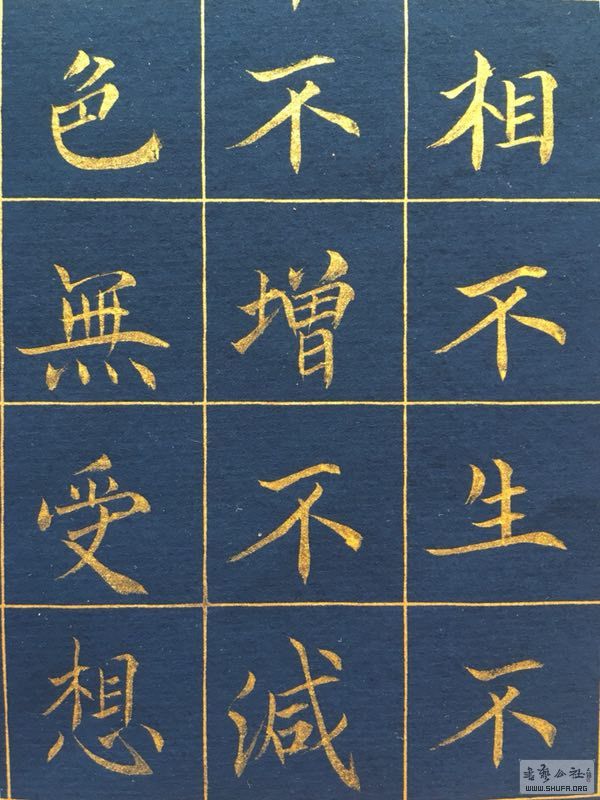 相不生不
不增不減
色無受想
書藝公社
WWW.SHUFA.ORG